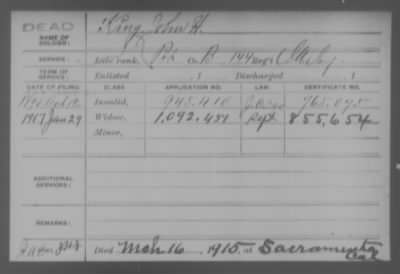 DEAD
NAME OF SOLDIER: King, John H.
SERVICE: Late rank, Pvt Co. B, 144 Reg't
TERM OF SERVICE: Enlisted , 1 Discharged , 1
DATE OF FILING. CLASS APPLICATION NO. LAW. CERTIFICATE NO.
Invalid, 943.410
1917 Jan 29 Widow, 1,092,451 855,654
Minor,
ADDITIONAL SERVICES:
REMARKS:
Died Mch 16, 1915, at Sacramento
Cal